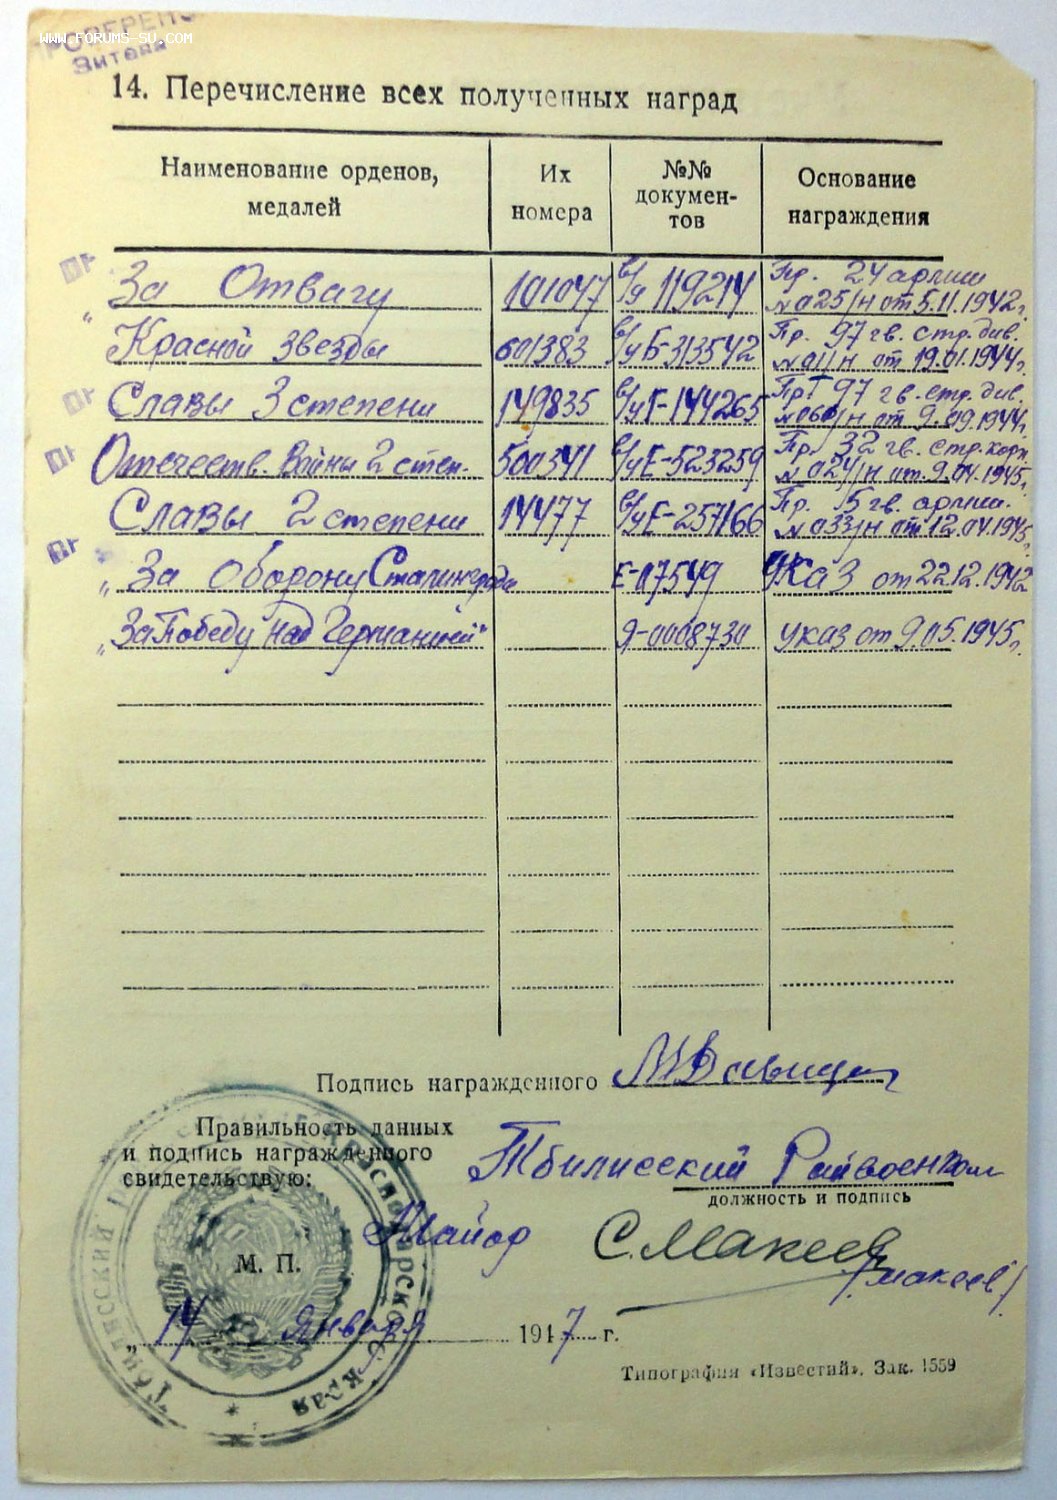 WWW.FORUMS-SU.COM
ПРОВЕРЕНО
14. Перечисление всех полученных наград
Наименование орденов, медалей | Их номера | №№ докумен-тов | Основание награждения
"За Отвагу | 101047 | в/у 119214 | Пр. 24 армии № 025/н от 5.11.1942г.
Красной звезды | 601383 | в/у Б-313542 | Пр. 97 гв. стр. див. № 011/н от 19.01.1944г.
Славы 3 степени | 149835 | в/у Г-144265 | Пр. 97 гв. стр. див. № 060/н от 9.09.1944г.
Отечеств. Войны 2 степ. | 500341 | в/у Е-523259 | Пр. 32 гв. стр. корп. № 024/н от 9.04.1945г.
Славы 2 степени | 14477 | в/у Е-257166 | Пр. 5 гв. армии. № 033/н от 12.04.1945г.
"За оборону Сталинграда | Е-07549 | Указ от 22.12.1942
"За Победу над Германией" | Я-0008730 | указ от 9.05.1945г.
Подпись награжденного
Правильность данных
и подпись награжденного
свидетельствую:
Тбилисский Райвоенком
должность и подпись
Майор
С. Макеев
/Макеев/
М. П.
„14 января 1947 г.
Типография «Известий». Зак. 1559
Тбилисский Краснодарского края